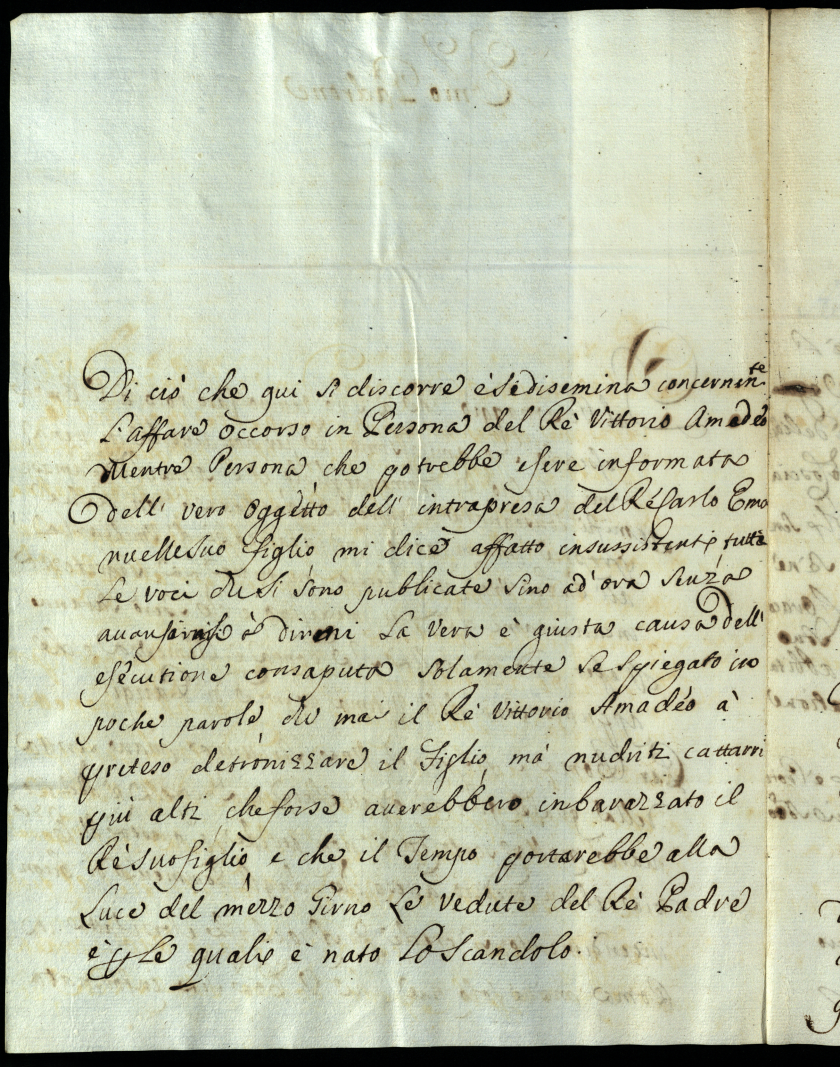 Di ciò che qui si discorre è si disemina concernen.te
L'affare occorso in Persona del Rè Vittorio Amedèo
Mentre Persona che potrebbe esere informata
dell' vero oggètto dell' intrapresa del Rè Carlo Ema
nuelle suo figlio mi dice affatto insussistenti tutte
Le voci che si sono publicate sino ad' ora senza
ò dirmi La vera è giusta causa dell'
esècutione consaputa solamente se spiegato in
poche parole che mai il Rè Vittorio Amadèo à
preteso detronizzare il figlio, mà nudriti cattarri
più alti, che forse averebbèro inbarazzato il
Rè suo figlio e che il Tempo portarebbe alla
Luce del mèzzo Girno Le vedute del Rè Padre
è p Le quali è nato Lo Scandolo.